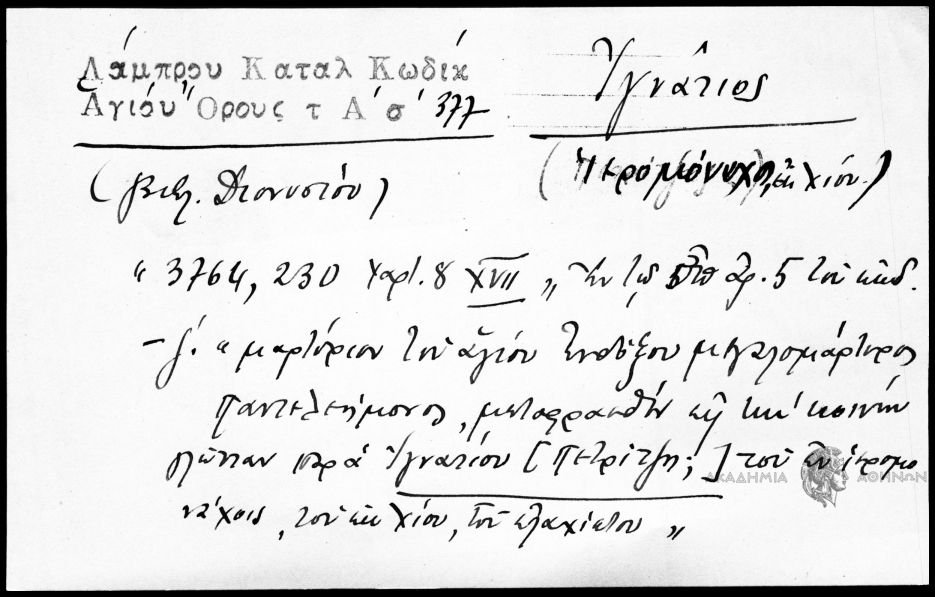 Λάμπρου Καταλ Κωδίκ
Ἁγίου Ὄρους τ Α´ σ´ 377
Ἰγνάτιος
(βιβλ. Διονυσίου)
(Ἱερομόναχος, ἐκ Χίου.)
"3764, 230 χαρτ. 8 XVII" Ἐν τῷ ὑπ' ἀρ. 5 τοῦ κώδ.
— γ´. "μαρτύριον τοῦ ἁγίου ἐνδόξου μεγαλομάρτυρος
Παντελεήμονος, μεταφρασθὲν εἰς τὴν κοινὴν
γλῶτταν παρὰ Ἰγνατίου [Πετρίτζη;] τοῦ ἐν ἱερομο
νάχοις, τοῦ ἐκ Χίου, τοῦ ἐλαχίστου"
ΑΚΑΔΗΜΙΑ ΑΘΗΝΩΝ